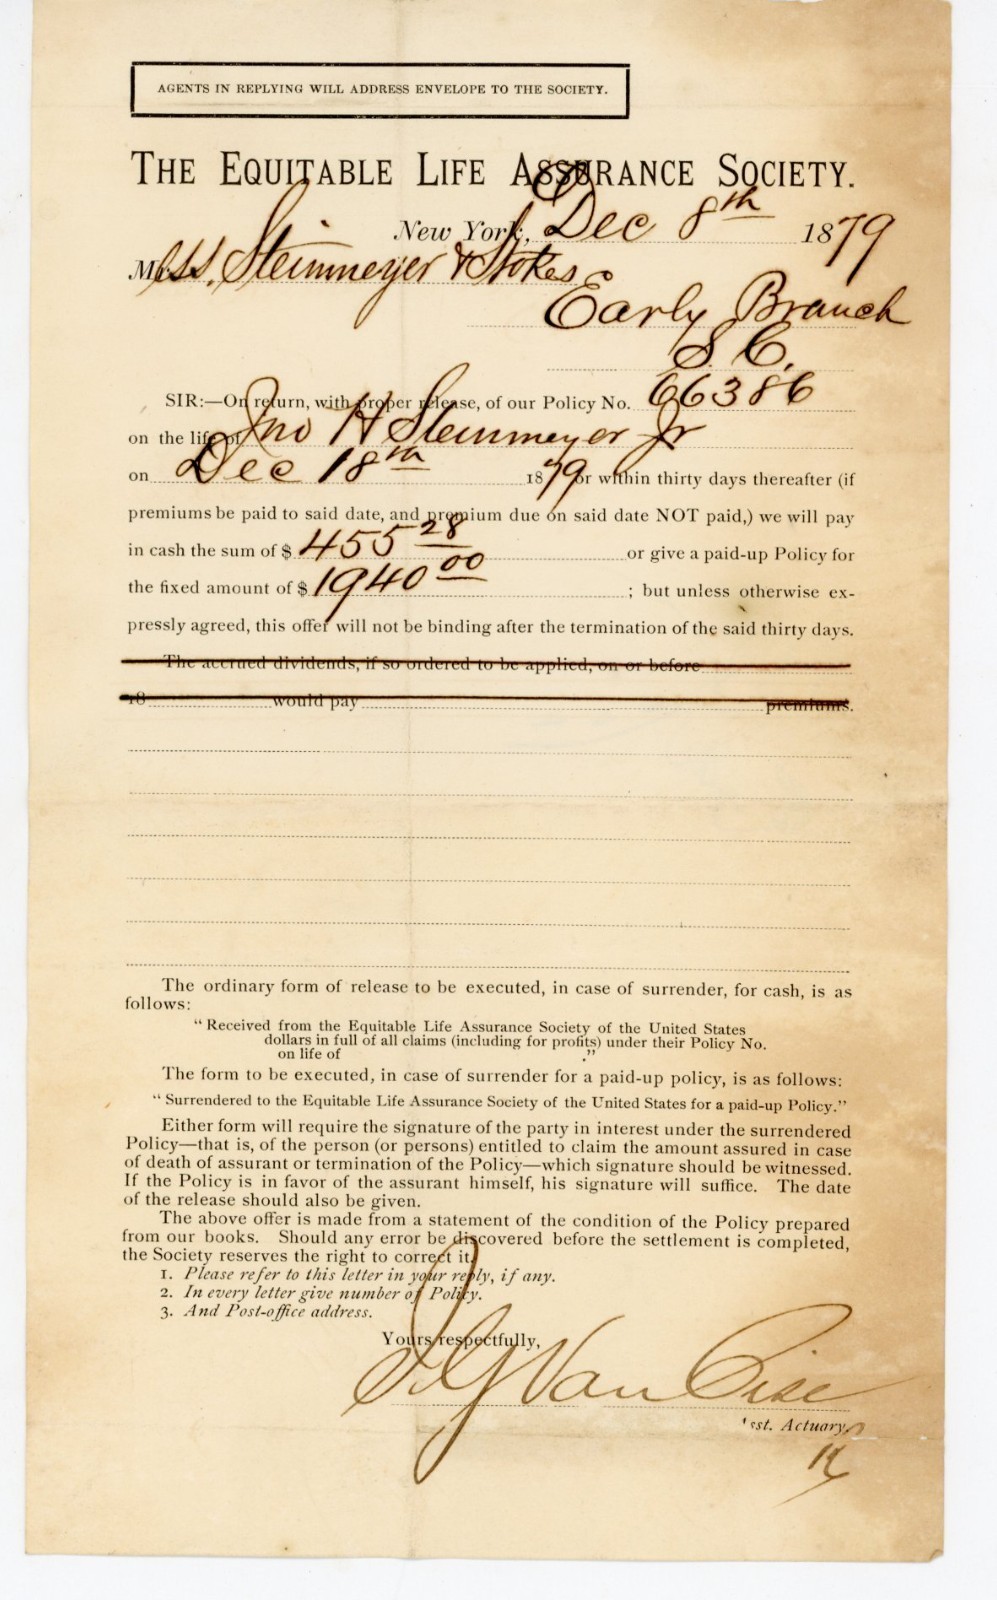 AGENTS IN REPLYING WILL ADDRESS ENVELOPE TO THE SOCIETY.
THE EQUITABLE LIFE ASSURANCE SOCIETY.
New York, Dec 8th 1879
Mess. Steinmeyer & Stokes
Early Branch
S. C.
SIR:—On return, with proper release, of our Policy No. 66386
on the life of Jno H Steinmeyer Jr
on Dec 18th 1879 or within thirty days thereafter (if
premiums be paid to said date, and premium due on said date NOT paid,) we will pay
in cash the sum of $ 455 28 or give a paid-up Policy for
the fixed amount of $ 1940 00 ; but unless otherwise ex-
pressly agreed, this offer will not be binding after the termination of the said thirty days.
The accrued dividends, if so ordered to be applied, on or before
18 would pay premiums.
The ordinary form of release to be executed, in case of surrender, for cash, is as
follows:
"Received from the Equitable Life Assurance Society of the United States
dollars in full of all claims (including for profits) under their Policy No.
on life of ."
The form to be executed, in case of surrender for a paid-up policy, is as follows:
"Surrendered to the Equitable Life Assurance Society of the United States for a paid-up Policy."
Either form will require the signature of the party in interest under the surrendered
Policy—that is, of the person (or persons) entitled to claim the amount assured in case
of death of assurant or termination of the Policy—which signature should be witnessed.
If the Policy is in favor of the assurant himself, his signature will suffice. The date
of the release should also be given.
The above offer is made from a statement of the condition of the Policy prepared
from our books. Should any error be discovered before the settlement is completed,
the Society reserves the right to correct it.
1. Please refer to this letter in your reply, if any.
2. In every letter give number of Policy.
3. And Post-office address.
Yours respectfully,
J G Van Cise
Asst. Actuary.